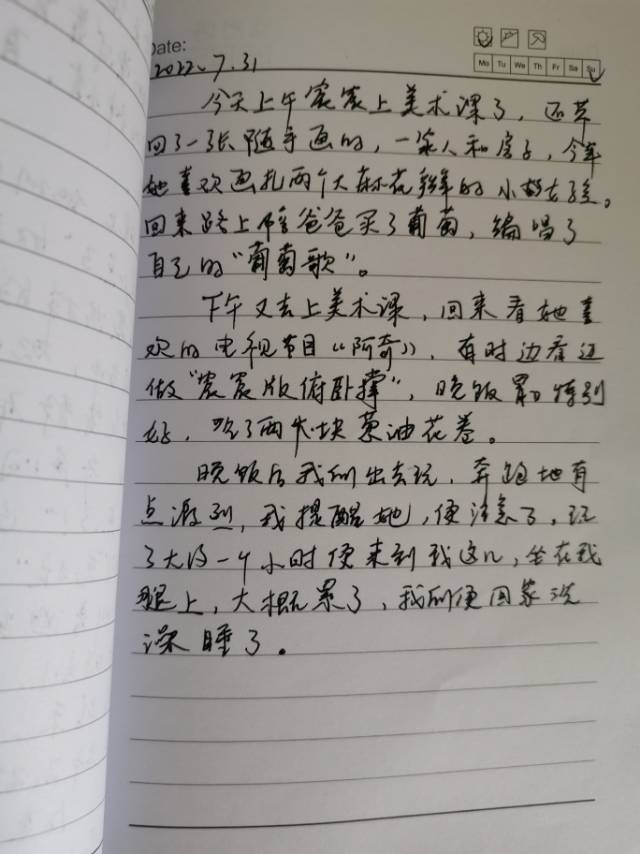 Date:
2022.7.31
Mo Tu We Th Fr Sa Su
今天上午宸宸上美术课了，还带
回了一张随手画的，一家人和房子，今年
她喜欢画扎两个大麻花辫的小女孩。
回来路上陪爸爸买了葡萄，编唱了
自己的“葡萄歌”。
下午又去上美术课，回来看她喜
欢的电视节目《阿奇》，有时边看边
做“宸宸版俯卧撑”，晚饭特别
好，吃了两大块葱油花卷。
晚饭后我们出去玩，奔跑地有
点激烈，我提醒她，便注意了，玩
了大约一个小时便来到我这儿，坐在我
腿上，大概累了，我们便回家洗
澡睡了。